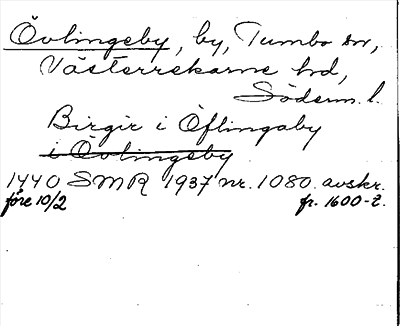 Övlingeby, by, Tumbo sn,
Västerrekarne hd,
Söderm. l.
Birgir i Öflingaby
i Övlingeby
1440 SMR 1937 nr. 1080. avskr.
före 10/2 fr. 1600-t.